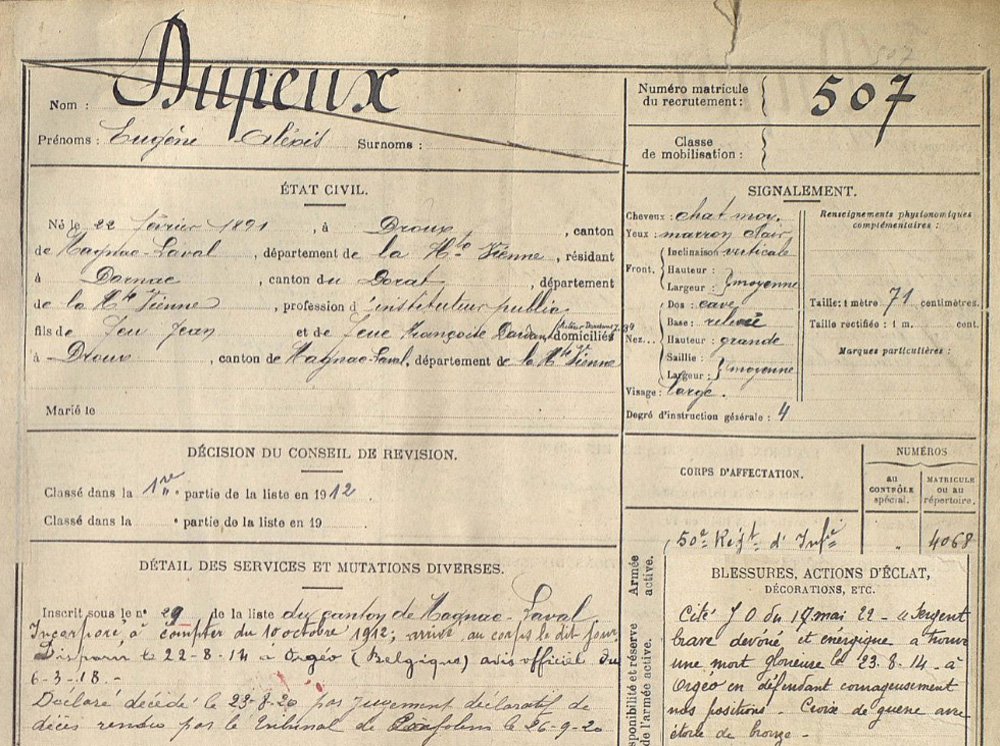 Nom : Dupeux
Prénoms : Eugène Alexis Surnoms :
Numéro matricule du recrutement : 507
Classe de mobilisation :
ÉTAT CIVIL.
Né le 22 février 1891, à Droux, canton
de Magnac-Laval, département de la Hte Vienne, résidant
à Darnac, canton du Dorat, département
de la Hte Vienne, profession d'instituteur public
fils de feu Jean et de feue Françoise domiciliés
à Droux, canton de Magnac-Laval, département de la Hte Vienne
Marié le
SIGNALEMENT.
Cheveux : chat moy.
Yeux : marron clair
Front, Inclinaison verticale
Hauteur :
Largeur : moyenne
Nez... Dos : cave
Base : relevée
Hauteur : grande
Saillie :
Largeur : moyenne
Visage : large.
Degré d'instruction générale : 4
Renseignements physionomiques
complémentaires :
Taille : 1 mètre 71 centimètres.
Taille rectifiée : 1 m. cent.
Marques particulières :
DÉCISION DU CONSEIL DE REVISION.
Classé dans la 1re partie de la liste en 1912.
Classé dans la partie de la liste en 19
CORPS D'AFFECTATION.
NUMÉROS
au CONTRÔLE spécial.
MATRICULE ou au répertoire.
Armée active.
50e Regt d'Infie " 4068
DÉTAIL DES SERVICES ET MUTATIONS DIVERSES.
Inscrit sous le n° 29 de la liste du canton de Magnac-Laval
Incorporé à compter du 10 octobre 1912; arrivé au corps le dit jour.
Disparu le 22-8-14 à Orgéo (Belgique) avis officiel du
6-3-18.-
Déclaré décédé le 23-8-20 par jugement déclaratif de
décès rendu par le tribunal de le 26-9-20
Disponibilité et réserve
de l'armée active.
BLESSURES, ACTIONS D'ÉCLAT,
DÉCORATIONS, ETC.
Cité J O du 17 mai 22 - "Sergent
brave dévoué et énergique a trouvé
une mort glorieuse le 23.8.14 - à
Orgéo en défendant courageusement
nos positions - Croix de guerre avec
étoile de bronze -